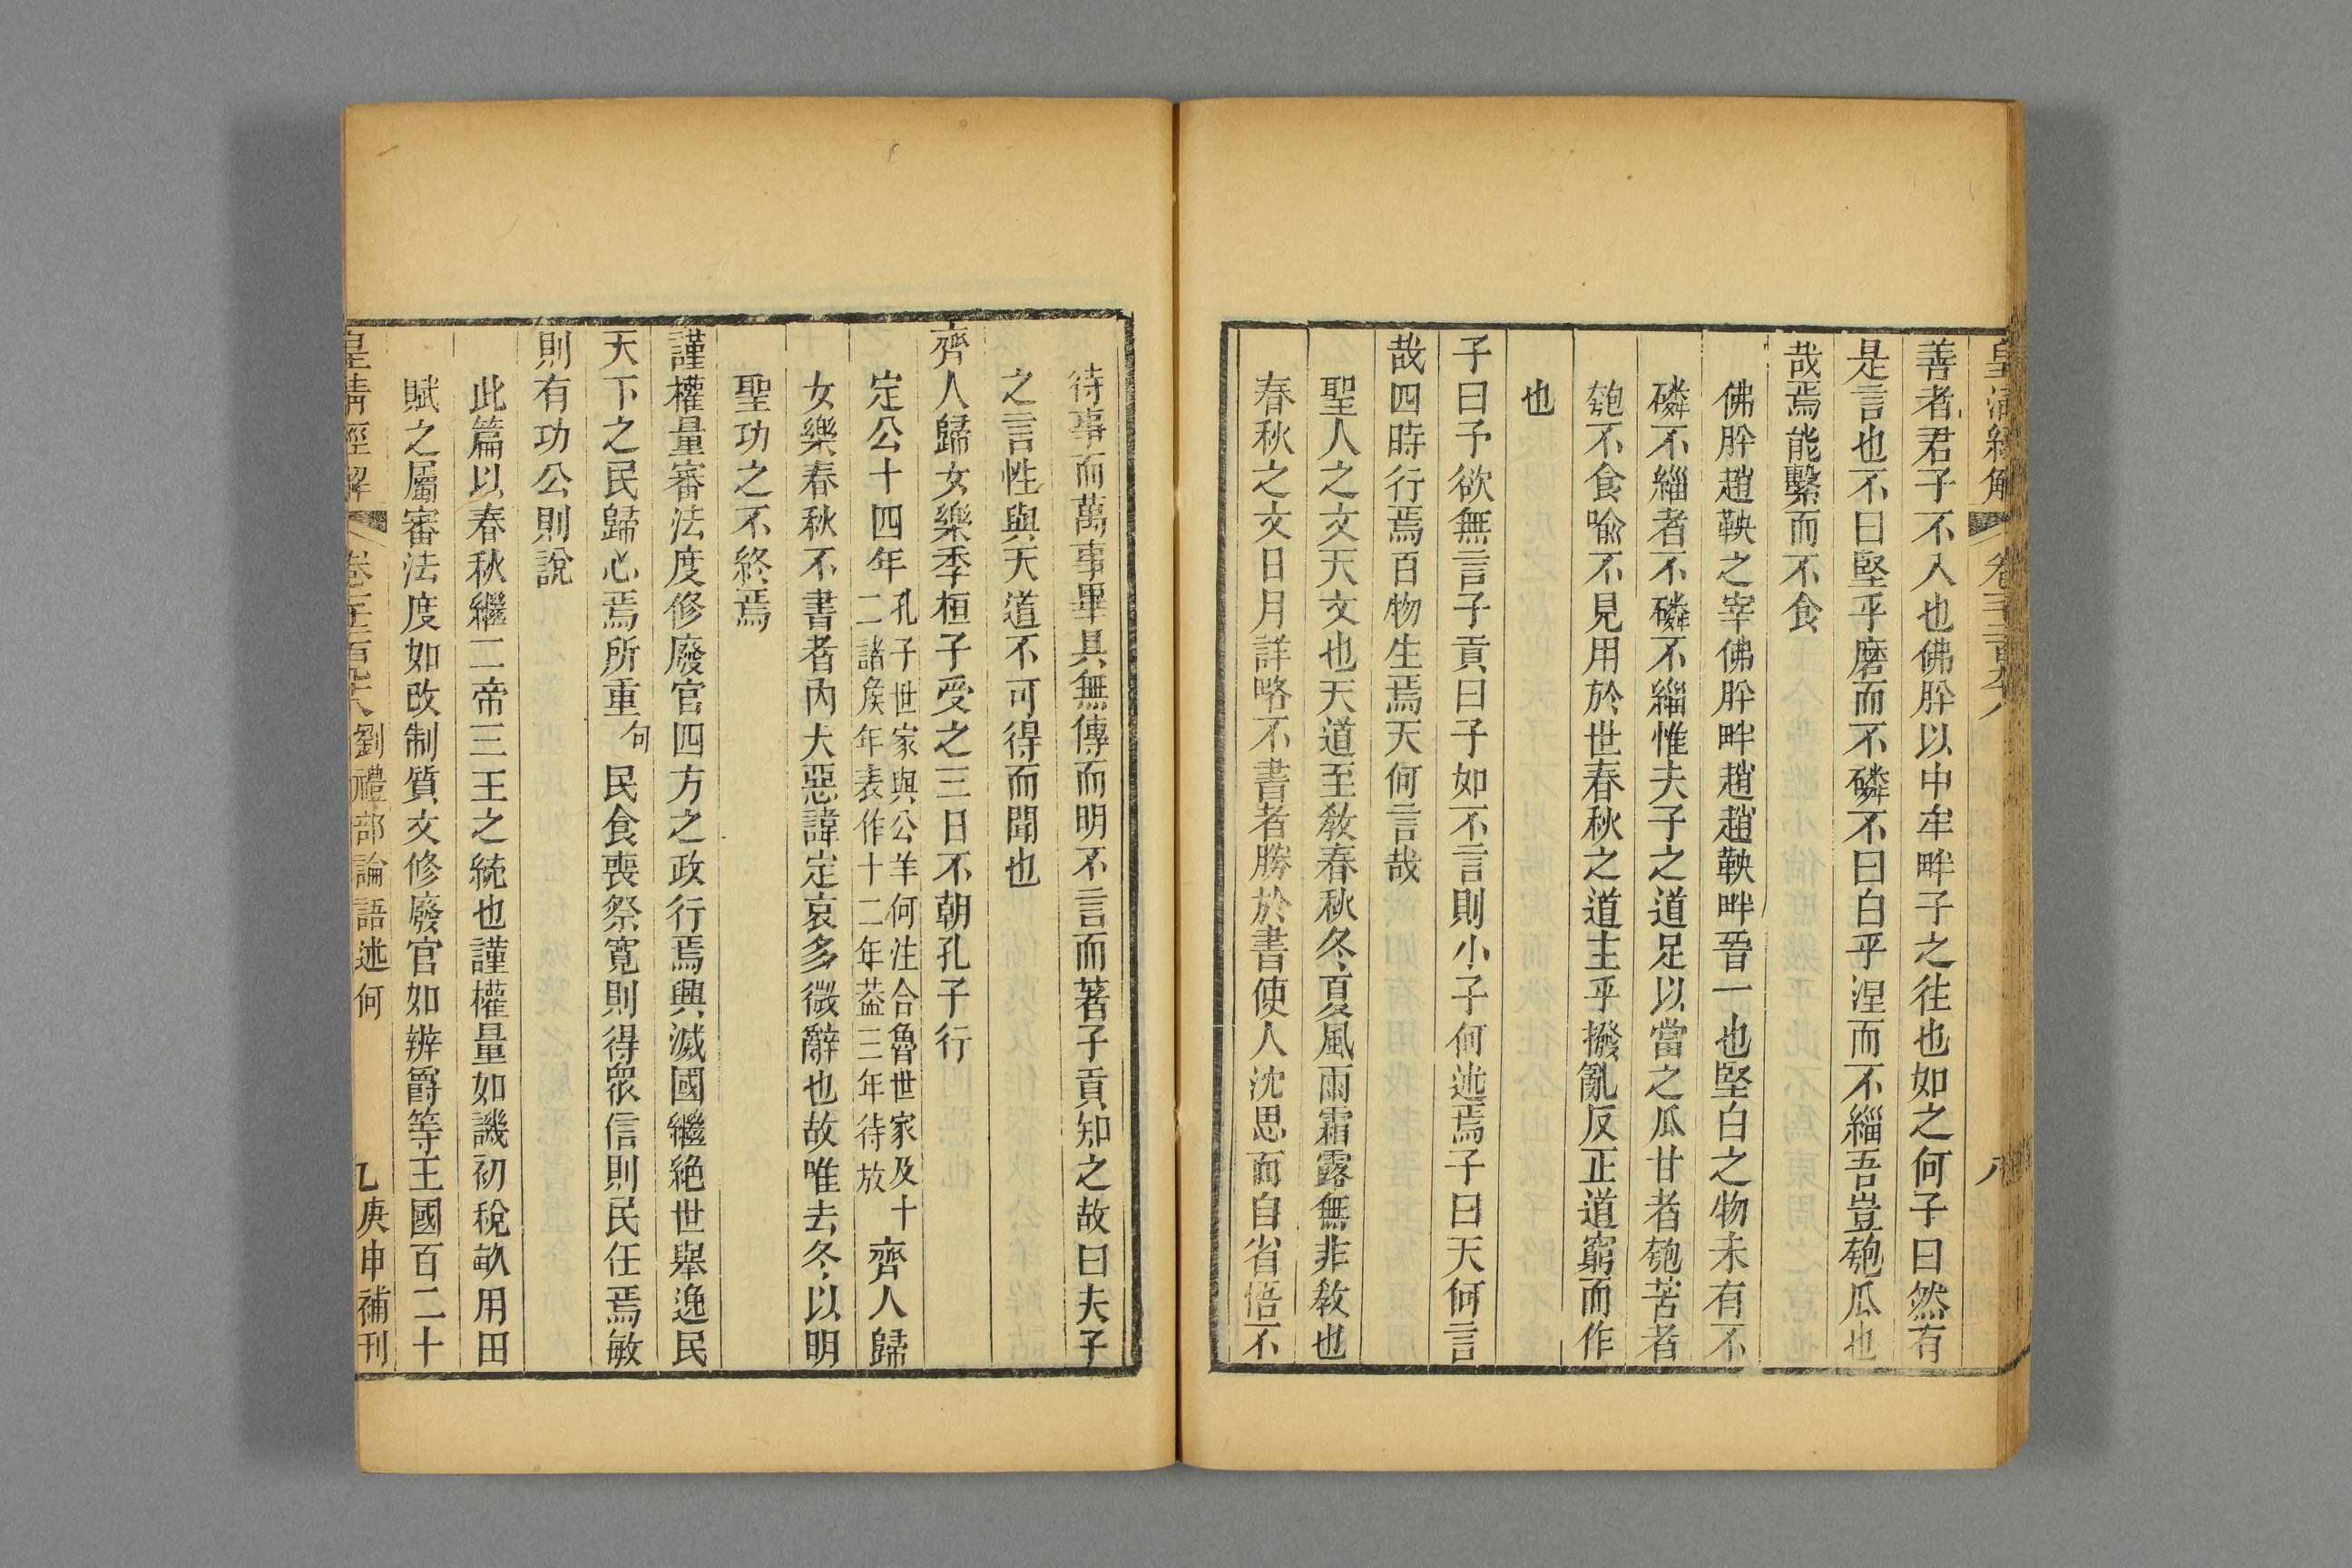 皇清經解 卷千二百九十八 八
善者君子不入也佛肸以中牟畔子之往也如之何子曰然有
是言也不曰堅乎磨而不磷不曰白乎涅而不緇吾豈匏瓜也
哉焉能繫而不食
佛肸趙鞅之宰佛肸畔趙趙鞅畔晉一也堅白之物未有不
磷不緇者不磷不緇惟夫子之道足以當之瓜甘者匏苦者
匏不食喻不見用於世春秋之道主乎撥亂反正道窮而作
也
子曰予欲無言子貢曰子如不言則小子何述焉子曰天何言
哉四時行焉百物生焉天何言哉
聖人之文天文也天道至敎春秋冬夏風雨霜露無非敎也
春秋之文日月詳略不書者勝於書使人沈思而自省悟不
待事而萬事畢具無傳而明不言而著子貢知之故曰夫子
之言性與天道不可得而聞也
齊人歸女樂季桓子受之三日不朝孔子行
定公十四年孔子世家與公羊何注合魯世家及十二諸矦年表作十二年葢三年待放齊人歸
女樂春秋不書者內大惡諱定哀多微辭也故唯去冬以明
聖功之不終焉
謹權量審法度修廢官四方之政行焉興滅國繼絕世舉逸民
天下之民歸心焉所重句民食喪祭寬則得衆信則民任焉敏
則有功公則說
此篇以春秋繼二帝三王之統也謹權量如譏初稅畝用田
賦之屬審法度如改制質文修廢官如辨爵等王國百二十
皇清經解 卷千二百九十八 劉禮部論語述何 乙 庚申補刊